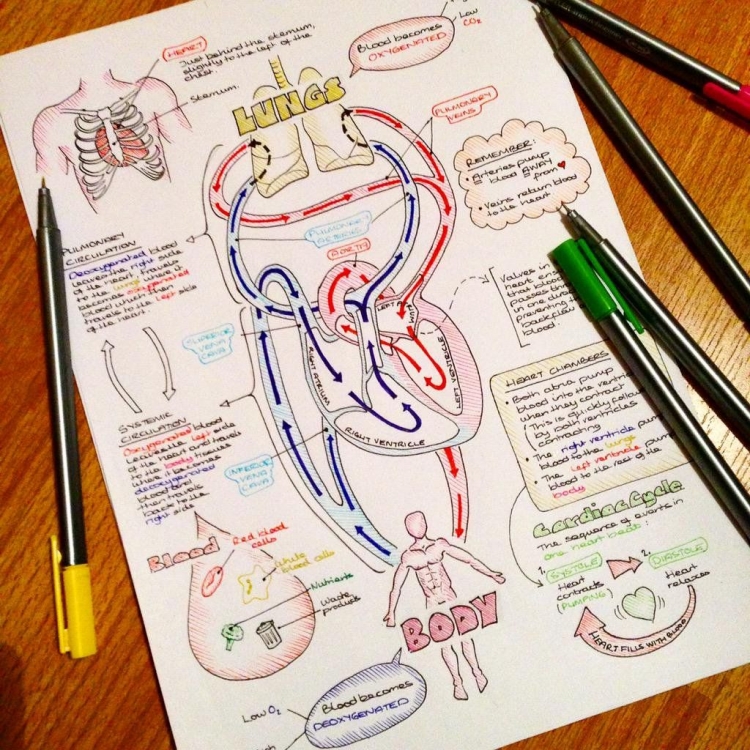 HEART
Just behind the sternum,
slightly to the left of the
chest.
Sternum.
LUNGS
Blood becomes
OXYGENATED
Low
CO₂
PULMONARY
VEINS
REMEMBER:
• Arteries pump
blood AWAY
from ♥
• Veins return blood
to the heart
PULMONARY
CIRCULATION
Deoxygenated blood
leaves the right side
of the heart, travels
to the lungs where it
becomes oxygenated
blood which then
travels to the left side
of the heart.
PULMONARY
ARTERIES
AORTA
SUPERIOR
VENA
CAVA
RIGHT ATRIUM
LEFT
LEFT VENTRICLE
RIGHT VENTRICLE
INFERIOR
VENA
CAVA
Valves in
heart
that blood
passes
in one
preventing
backflow
blood.
HEART CHAMBERS
• Both atria pump
blood into the
when they contract
(This is quickly
by both ventricles
contracting
• The right ventricle
blood to the lungs
• The left ventricle
blood to the rest of the
body
SYSTEMIC
CIRCULATION
Oxygenated blood
leaves the left side
of the heart and travels
to the body tissues
where it becomes
deoxygenated
blood and
then travels
back to the
right side
Cardiac Cycle
The sequence of events in
one heart beat:
1.
SYSTOLE
2.
DIASTOLE
Heart
contracts
(PUMPING)
Heart
relaxes
HEART FILLS WITH BLOOD
Blood
Red blood
cells
White
blood cells
Nutrients
Waste
products
BODY
Blood becomes
DEOXYGENATED
Low O₂